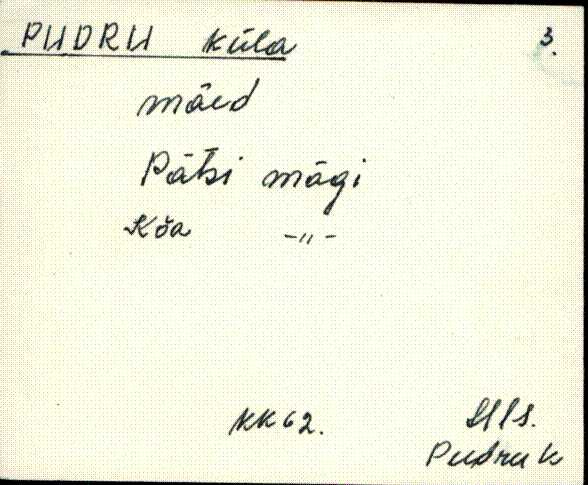 PUDRU küla 3.
mäed
Pätsi mägi
Kõa -"-
KK 62.
Pudru k